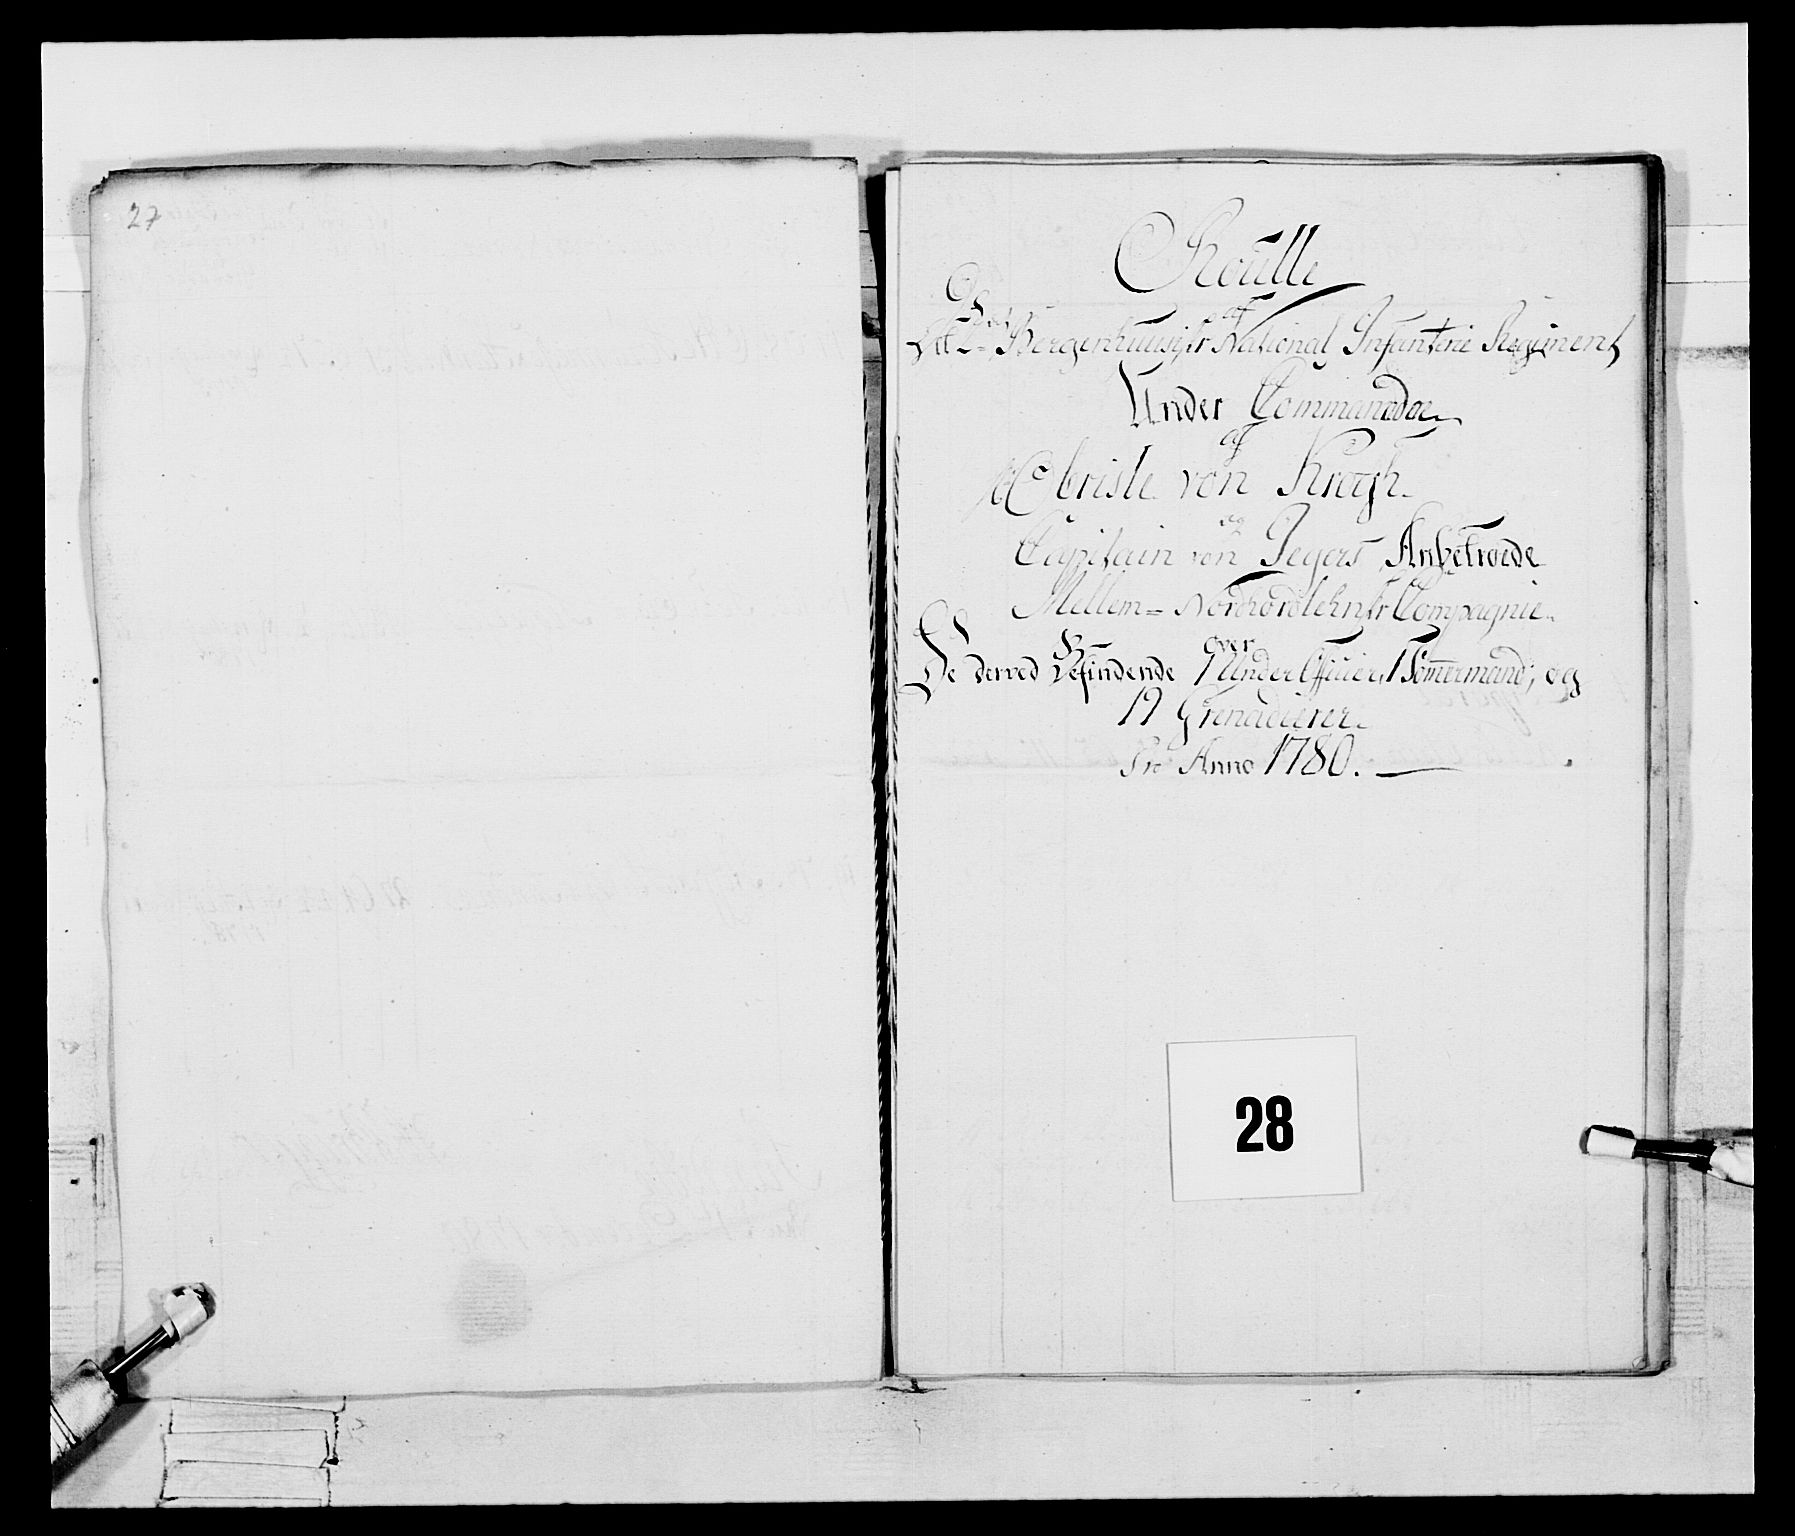 27
Roulle
af
Det 2det Bergenhuusiske National Infanterie Regiment
Under Commando
af
Obriste von Krogh
og
Capitain von Jegers Anbetroede
Mellem= Nordhordlehnske Compagnie.
over
De derved Befindende 1 Under Officier, 1 Tømmermand, og
19 Grenadierer.
Pro Anno 1780.
28